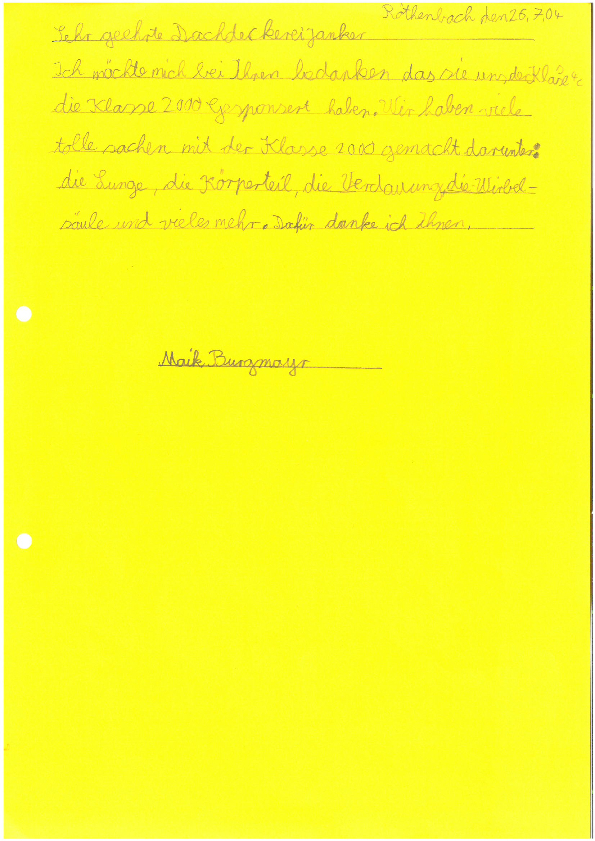 Röthenbach den 26.7.04
Sehr geehrte Dachdeckereijanker
Ich möchte mich bei Ihnen bedanken das sie uns, der Klasse 4c
die Klasse 2000 Gesponsert haben. Wir haben viele
tolle sachen mit der Klasse 2000 gemacht darunter:
die Lunge, die Körperteil, die Verdauung, die Wirbel-
säule und vieles mehr. Dafür danke ich Ihnen.
Maik Burgmayr